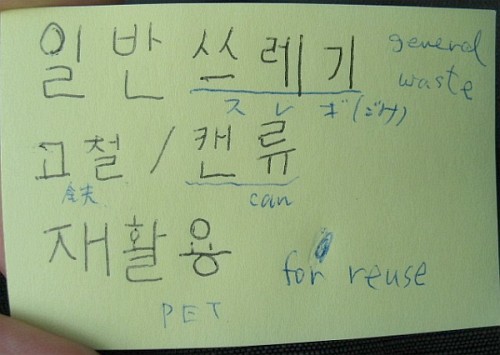 일반 쓰레기 general waste
スレギ(ゴミ)
고철/캔류
鉄 can
재활용 for reuse
PET